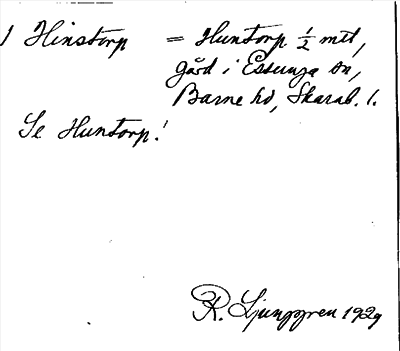 1 Hinstorp = Huntorp ½ mtl,
gård i Essunga sn,
Barne hd, Skarab. l.
Se Huntorp!
R. Ljunggren 1929